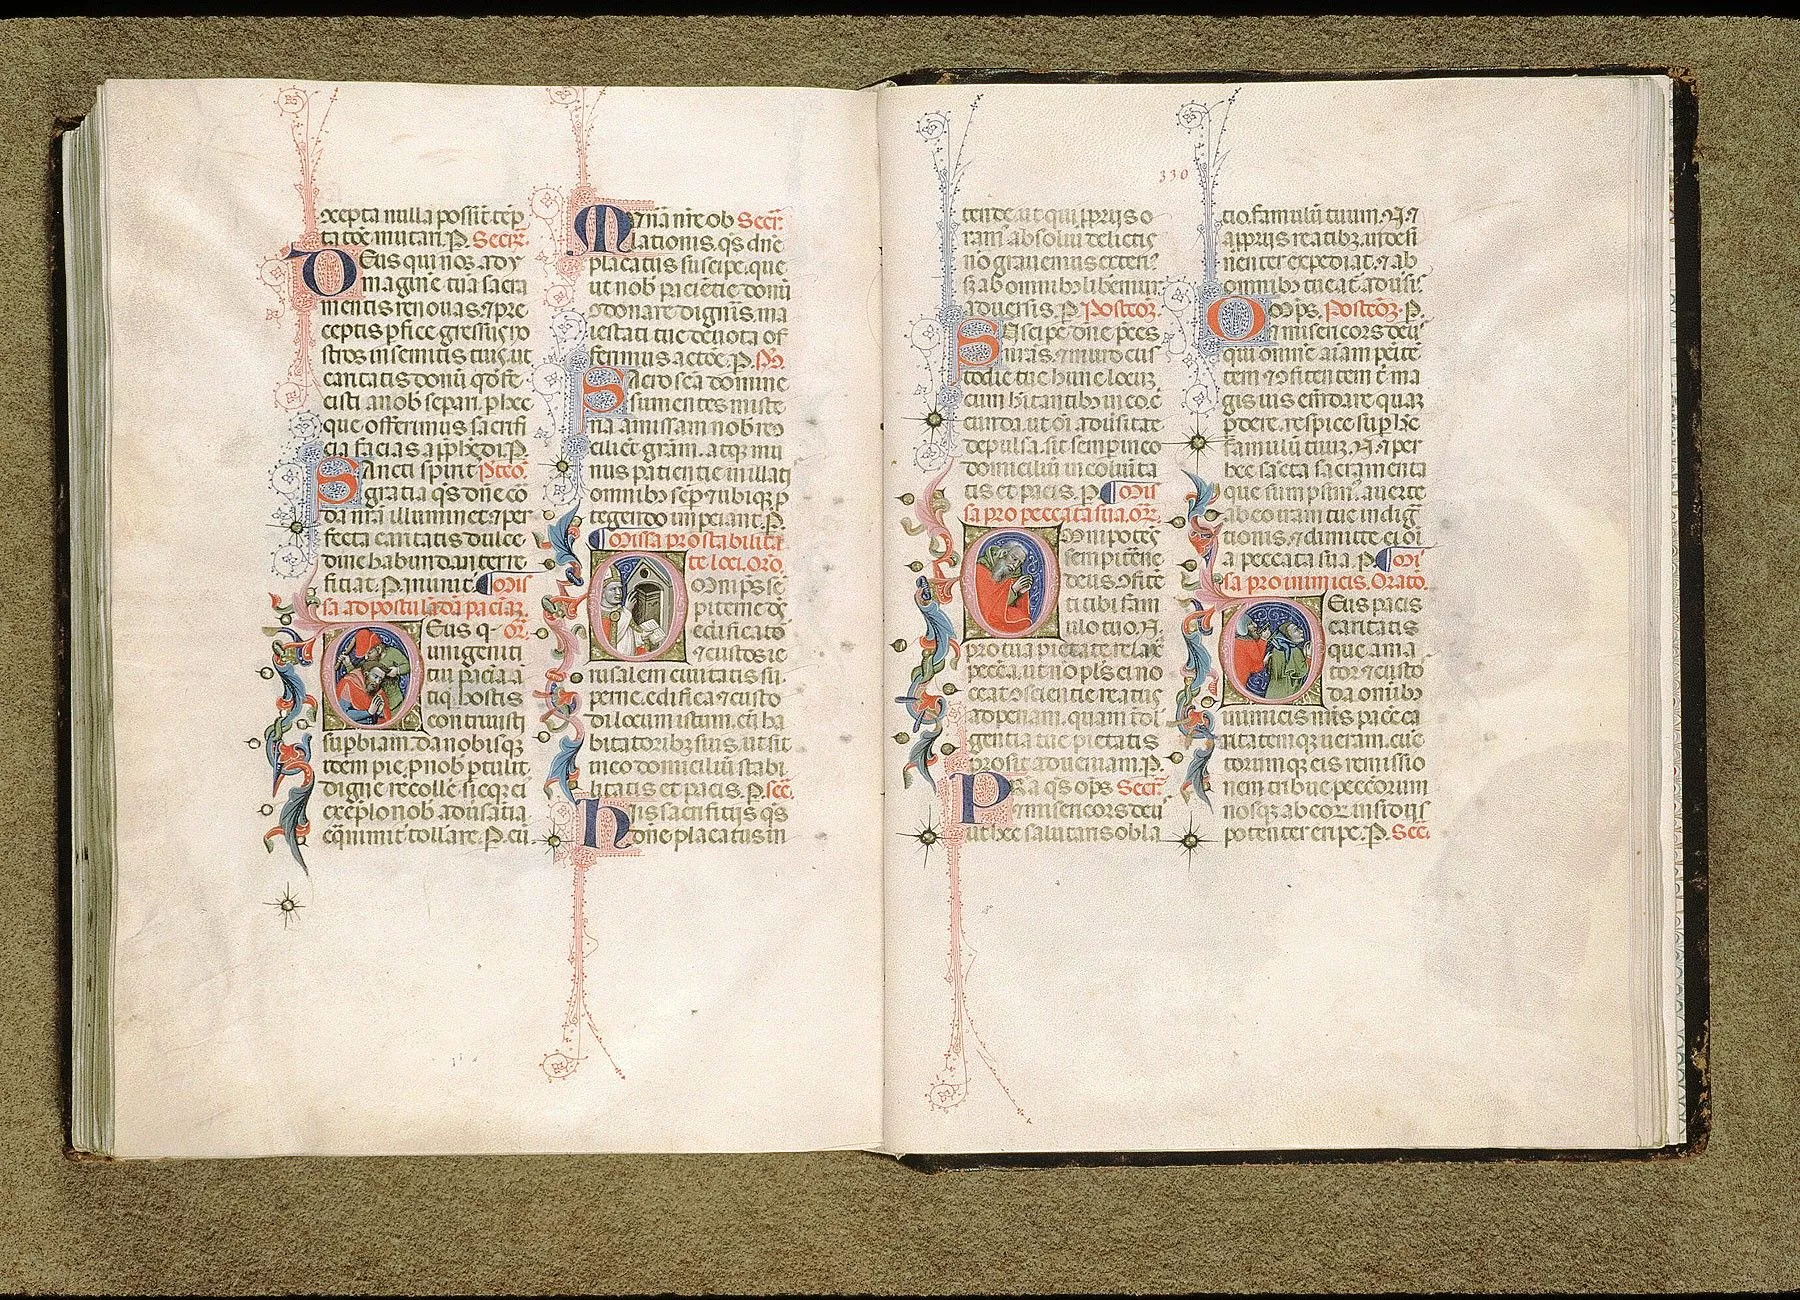 xcepta nulla possit tēp
tatōe mutari. P. Secr̄.
Deus qui nos ad y
magine tuā sacra
mentis renouas. ⁊ pre
ceptis pfice gressus no
stros in semitis tuis. ut
caritatis donū
a nob separi. p hec
que offerimus sacrifi
cia facias app̄hēdi. P.
Sancti spirit Pōcō.
gratia q̄s dn̄e co
da nr̄a illuminet. ⁊ per
fecta caritatis dulce
dine habundanter re
ficiat. P. Mis
sa ad postulādā paciāz.
Deus q or̄.
unigeniti
tui paciā ā
tiq hostis
contriuisti
supbiam. da nobis q̄
idem pie. p nob ptulit
digne recolle. sicq ei
exēplo nob adusātia
eq̄nimit tollare. P. eū
Munā nr̄e ob Secr̄.
lationis. q̄s dn̄e
placatus suscipe. que
ut nob paciētie donū
donare digneris. ma
iestati tue deuota of
ferimus actōe. P. Pō.
Sacrosc̄a domine
sumentes miste
ria amissam nob reo
ciliet grām. atq mu
nus patientie in illati
omnibʒ sep ⁊ ubiqʒ p
tegendo impeiant. P.
Missa pro stabilita
te loci. Oro.
Omīps sē
piterne ds
edificatō
⁊ custos ie
rusalem ciuitatis su
perne. edifica ⁊ custo
di locum istum. cū ha
bitatoribʒ suis. ut sit
in eo domiciliū stabi
litatis et pacis. P. sec̄.
His sacrificiis q̄s
dn̄e placatus in
330
tende. ut qui ppriis o
ram absolui delictis
nō grauemus exteri
s. ab omnibʒ liberemur
aduersis. P. Postcōr.
Suscipe dn̄e p̄ces
nr̄as. ⁊ muro cus
todie tue hunc locuʒ
cum hītantibʒ in eo. c
cunda. ut oī aduersitate
depulsa. sit sempr in eo
domiciliū incolūita
tis et pacis. P. Mis
sa pro peccata sua. Or̄.
Omnipotēs
sempiterne
deus. ɔfitē
ti tibi fam
ulo tuo. N.
pro tua pietate relax
pecc̄a. ut nō pl's ei no
ceat ɔscientie reatus
ad penam. quam īdul
gentia tue pietatis
prosit ad ueniam. P.
Pra q̄s op̄s Secr̄.
⁊ misericors deus
ut hec salutaris obla
tio. famulū tuum. N. ⁊
a ppriis reatibʒ indesi
nenter expediat. ⁊ ab
omnibʒ tueat aduersis.
Oōps. Postcōr. P.
⁊ misericors deus
qui omnē aīam penitē
tem ⁊ ɔfitentem t̄ ma
gis uis emēdare quaʒ
pdere. respice sup hc̄
famulū tuuʒ. N. ⁊ per
hec sacta sacramenta
que sumpsim. auerte
ab eo iram tue indig
tionis. ⁊ dimitte ei oī
a peccata sua. P. Mi
sa pro inimicis. Orato.
Deus pacis
caritatis
que ama
tor ⁊ custo
da omnibʒ
inimicis nr̄is pacē ca
ritatemqʒ ueram. cūc
torumqʒ eis remissio
nem tribue peccorum
nosqʒ ab eoʒ insidiis
potenter eripe. P. Sec̄.